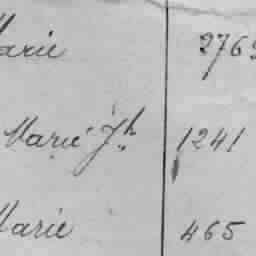 Marie 2769
Marie Jh 1241
Marie 465